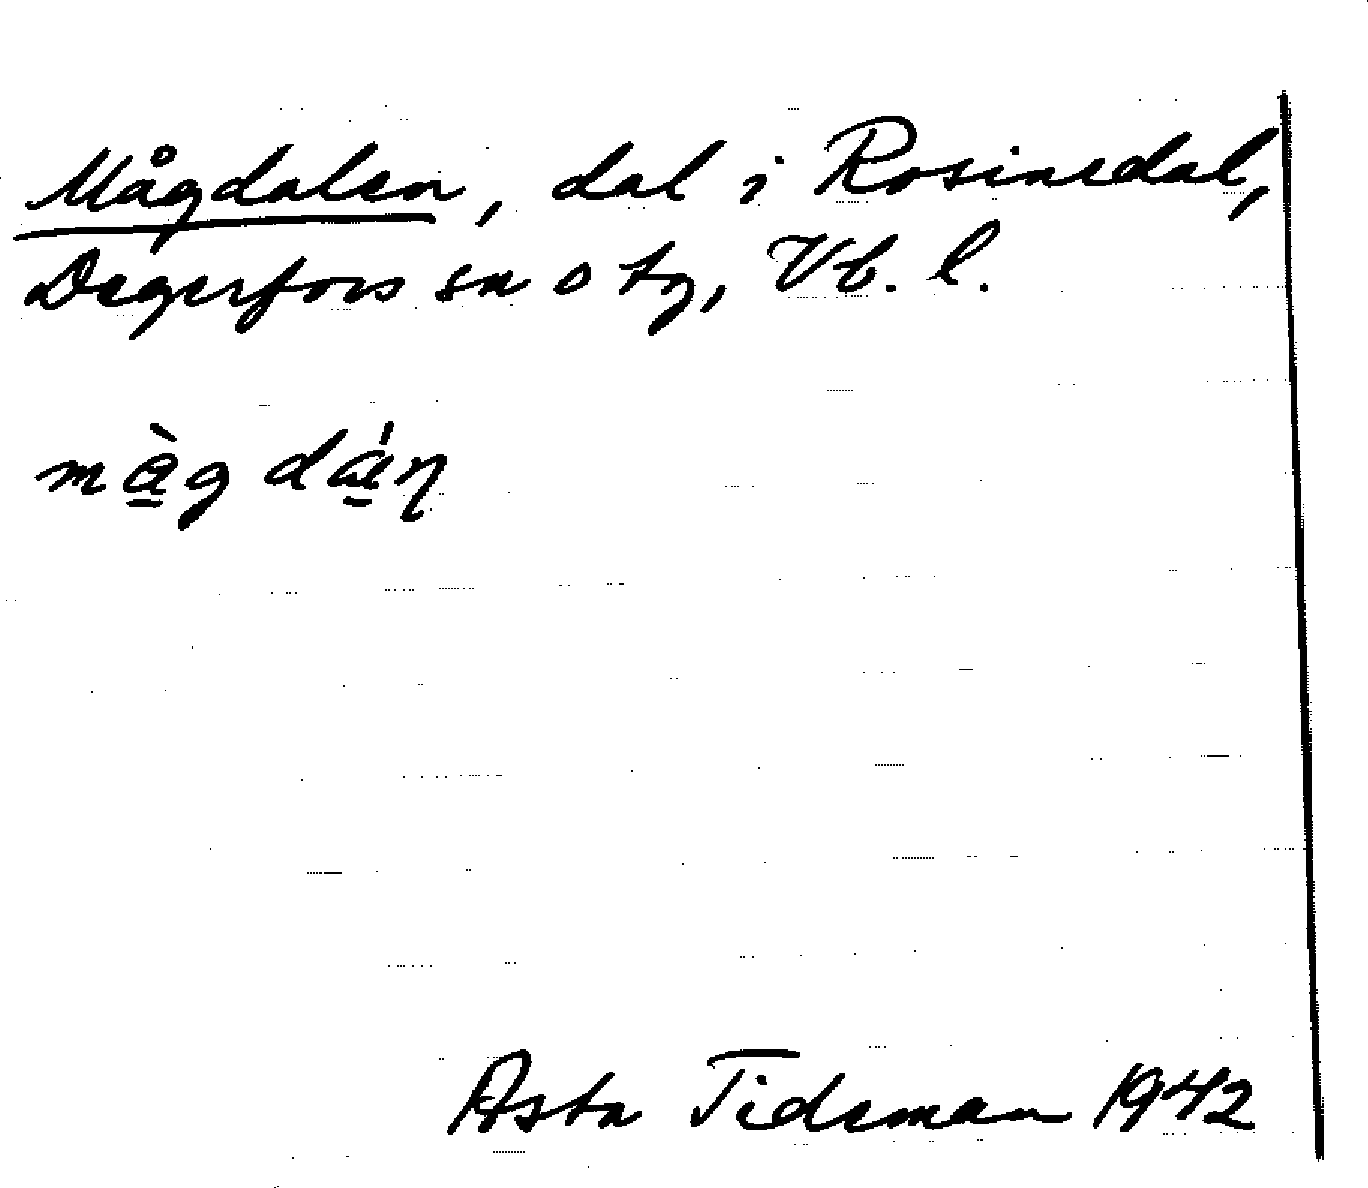 Mågdalen, dal i Rosinedal,
Degerfors sn o tg, Vb. l.
mà̱g dá̱ŋ
Asta Tideman 1942